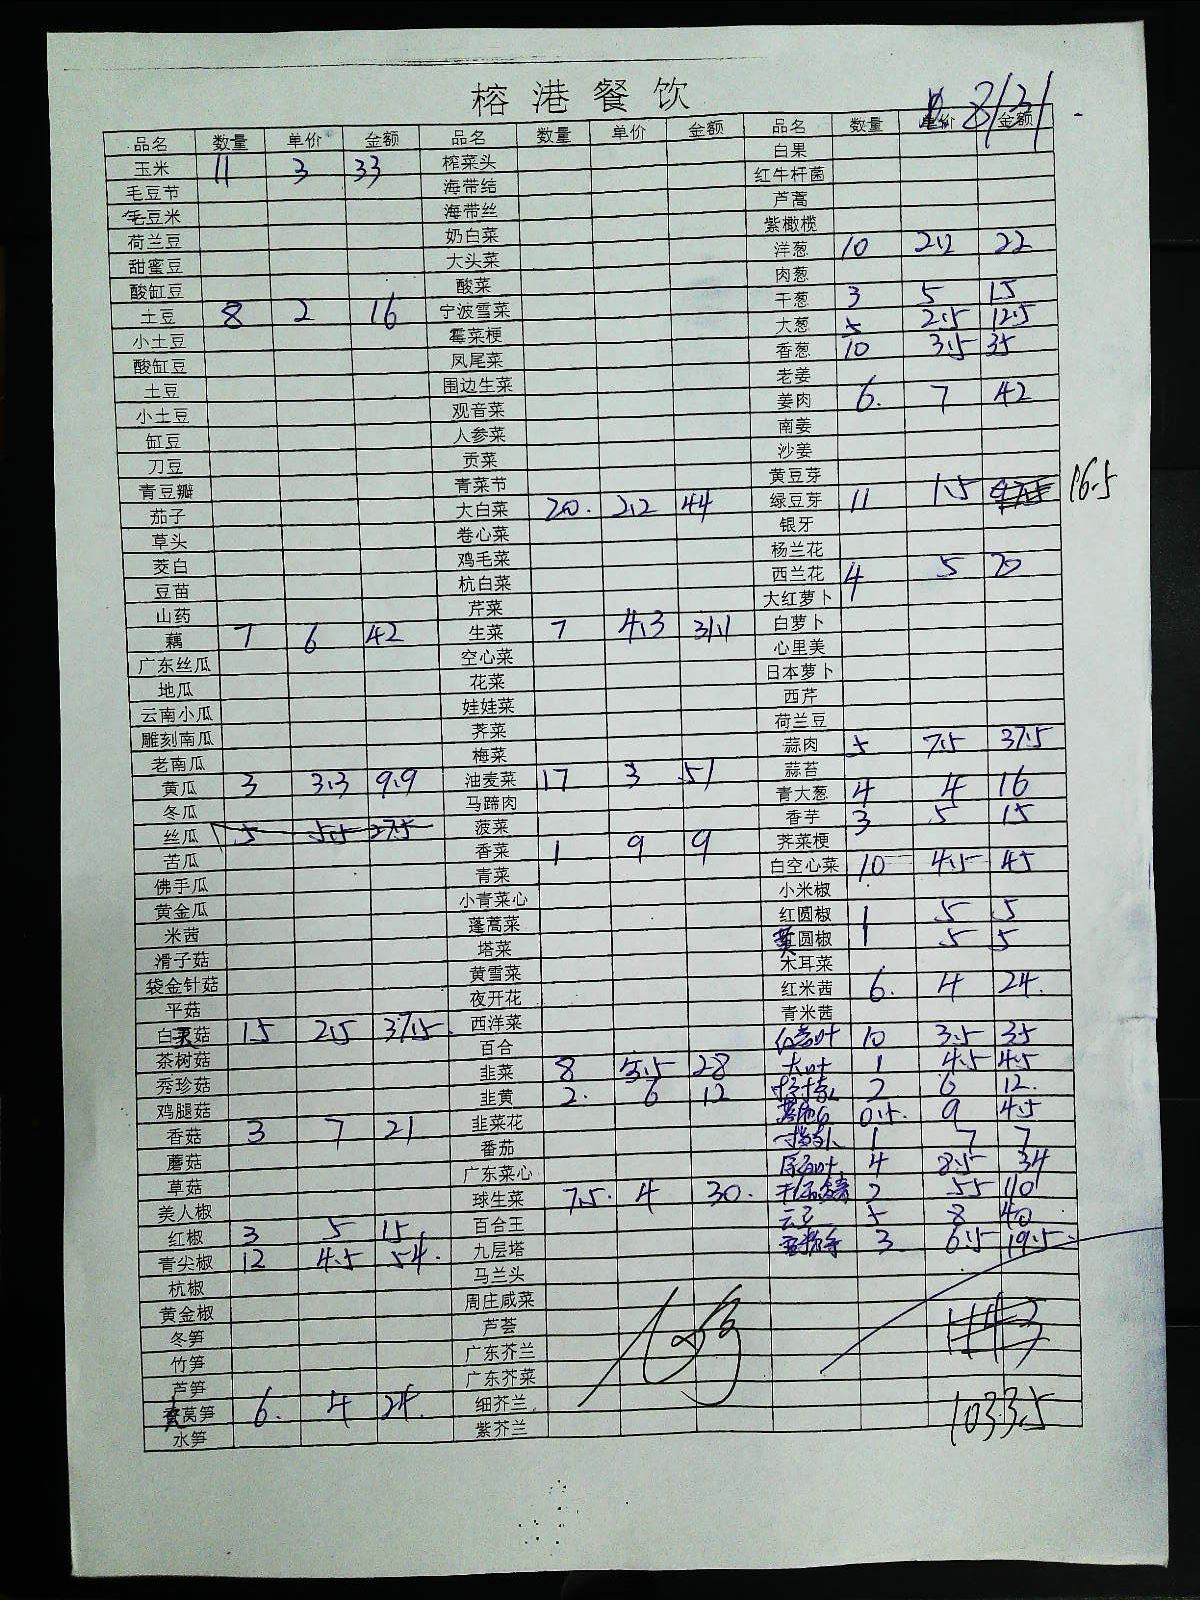 榕港餐饮
8/31
品名 数量 单价 金额 品名 数量 单价 金额 品名 数量 单价 金额
玉米 11 3 33 榨菜头 白果
毛豆节 海带结 红牛杆菌
毛豆米 海带丝 芦蒿
荷兰豆 奶白菜 紫橄榄
甜蜜豆 大头菜 洋葱 10 2.2 22
酸缸豆 酸菜 肉葱
土豆 8 2 16 宁波雪菜 干葱 3 5 15
小土豆 霉菜梗 大葱 5 2.5 12.5
酸缸豆 凤尾菜 香葱 10 3.5 35
土豆 围边生菜 老姜
小土豆 观音菜 姜肉 6. 7 42
缸豆 人参菜 南姜
刀豆 贡菜 沙姜
青豆瓣 青菜节 黄豆芽
茄子 大白菜 20. 2.2 44 绿豆芽 11 1.5 16.5
草头 卷心菜 银牙
茭白 鸡毛菜 杨兰花
豆苗 杭白菜 西兰花 4 5 20
山药 芹菜 大红萝卜
藕 7 6 42 生菜 7 4.3 31.1 白萝卜
广东丝瓜 空心菜 心里美
地瓜 花菜 日本萝卜
云南小瓜 娃娃菜 西芹
雕刻南瓜 荠菜 荷兰豆
老南瓜 梅菜 蒜肉 5 7.5 37.5
黄瓜 3 3.3 9.9 油麦菜 17 3 51 蒜苔
冬瓜 马蹄肉 青大葱 4 4 16
丝瓜 5 5.5 27.5 菠菜 香芋 3 5 15
苦瓜 香菜 1 9 9 荠菜梗
佛手瓜 青菜 白空心菜 10 4.5 45
黄金瓜 小青菜心 小米椒
米茜 蓬蒿菜 红圆椒 1 5 5
滑子菇 塔菜 黄圆椒 1 5 5
袋金针菇 黄雪菜 木耳菜
平菇 夜开花 红米茜 6. 4 24.
白灵菇 15 2.5 37.5. 西洋菜 青米茜
茶树菇 百合 10 3.5 35
秀珍菇 韭菜 8 3.5 28 大叶 1 4.5 4.5
鸡腿菇 韭黄 2. 6 12 2 6 12.
香菇 3 7 21 韭菜花 0.5. 9 4.5
蘑菇 番茄 1 7 7
草菇 广东菜心 4 8.5 34
美人椒 球生菜 7.5. 4 30. 2 55 110
红椒 3 5 15 百合王 云豆 5 8 40
青尖椒 12 4.5 54. 九层塔 3 6.5 19.5
杭椒 马兰头
黄金椒 周庄咸菜
冬笋 芦荟
竹笋 广东芥兰
芦笋 广东芥菜
莴笋 6. 4 24. 细芥兰 1033.5
水笋 紫芥兰